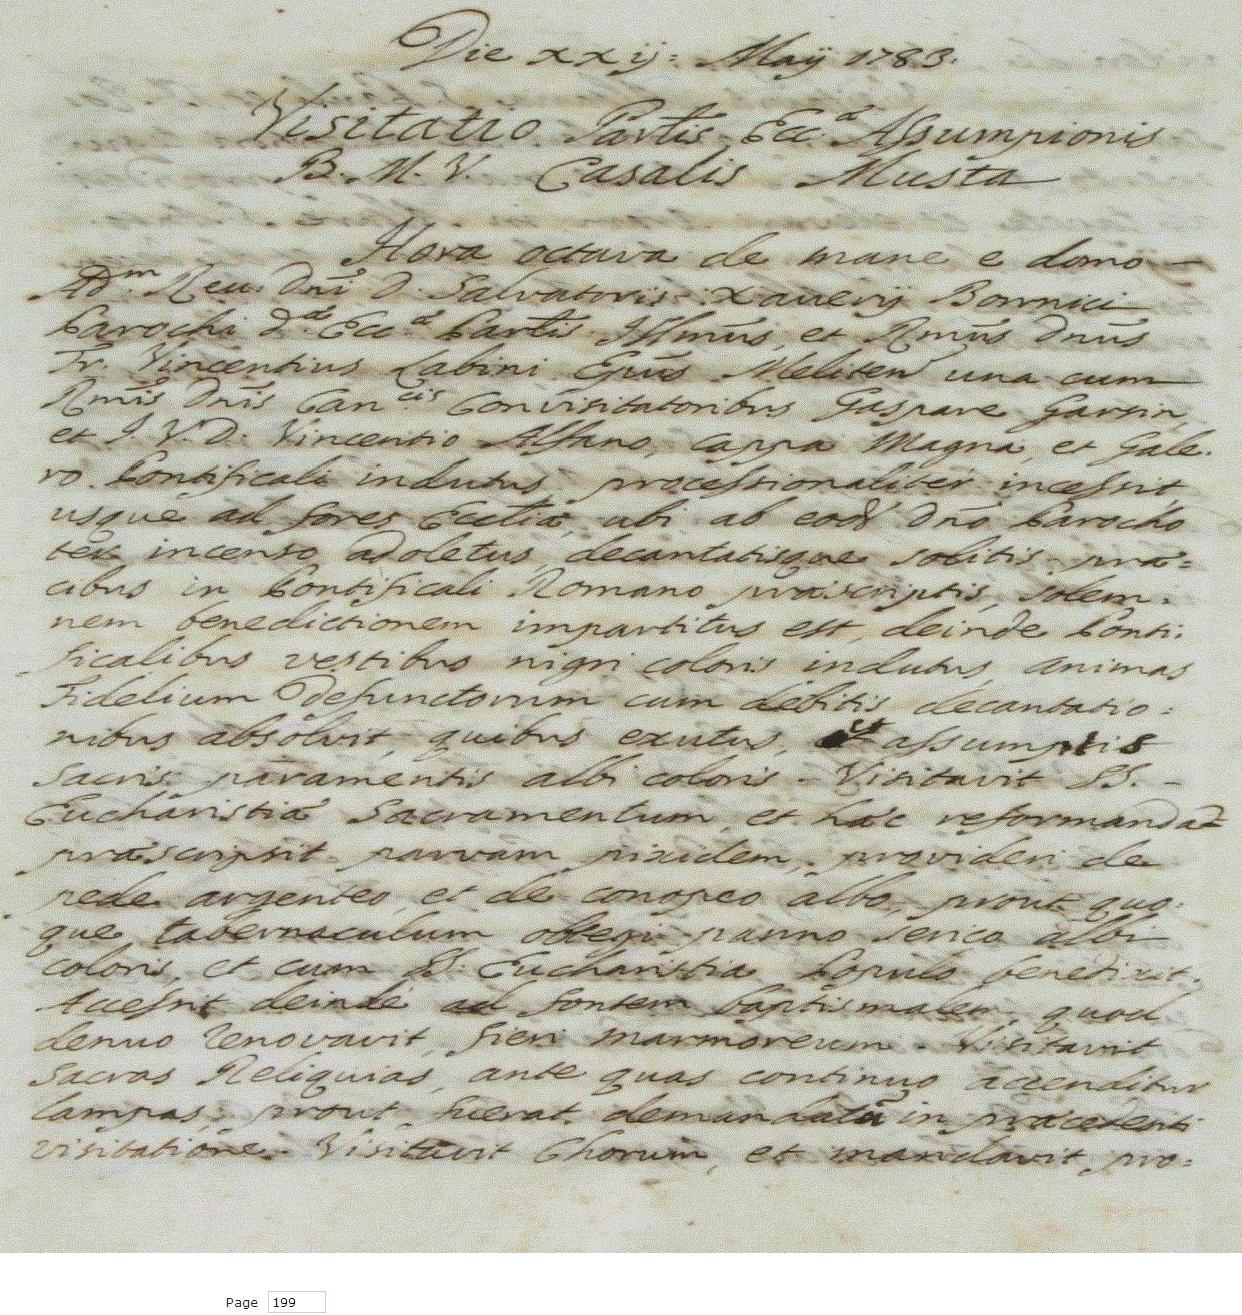 Die xxij: Maij 1783.
Visitatio Partis Ecc.æ Assumptionis
B. M. V. Casalis Musta
Hora octava de mane e domo
Ad.m Reu. Dñi D. Salvatoris Xaverij Bonnici
Parochi d.æ Ecc.æ Partis Illmus, et Rmus Dnus
Fr. Vincentius Labini Epus Meliten una cum
Rmis Dnis Can.cis Convisitatoribus Gaspare Garsin,
et J. V. D. Vincentio Alfano, cappa Magna, et Gale-
ro Pontificali indutus processionaliter incessit
usque ad fores Ecclæ, ubi ab eod Dno Parocho
ter incenso adoletus, decantatisque solitis præ=
cibus in Pontificali Romano præscriptis, solem-
nem benedictionem impartitus est, deinde Ponti-
ficalibus vestibus nigri coloris indutus, animas
Fidelium Defunctorum cum debitis decantatio=
nibus absolvit, quibus exutus, et assumptis
sacris paramentis albi coloris. Visitavit SS.
Eucharistiæ Sacramentum, et hæc reformanda
præscripsit. parvam pixidem, provideri de
pede argenteo, et de conopeo albo, prout quo-
que tabernaculum obtegi panno serico albi
coloris, et cum SS. Eucharistia Populo benedixit.
Accessit deinde ad fontem baptismalem, quod
denuo renovavit, fieri marmoreum. Visitavit
Sacras Reliquias, ante quas continuo accenditur
lampas, prout fuerat demandatũ in præcedenti
visitatione. Visitavit Chorum, et mandavit, pro=
Page 199